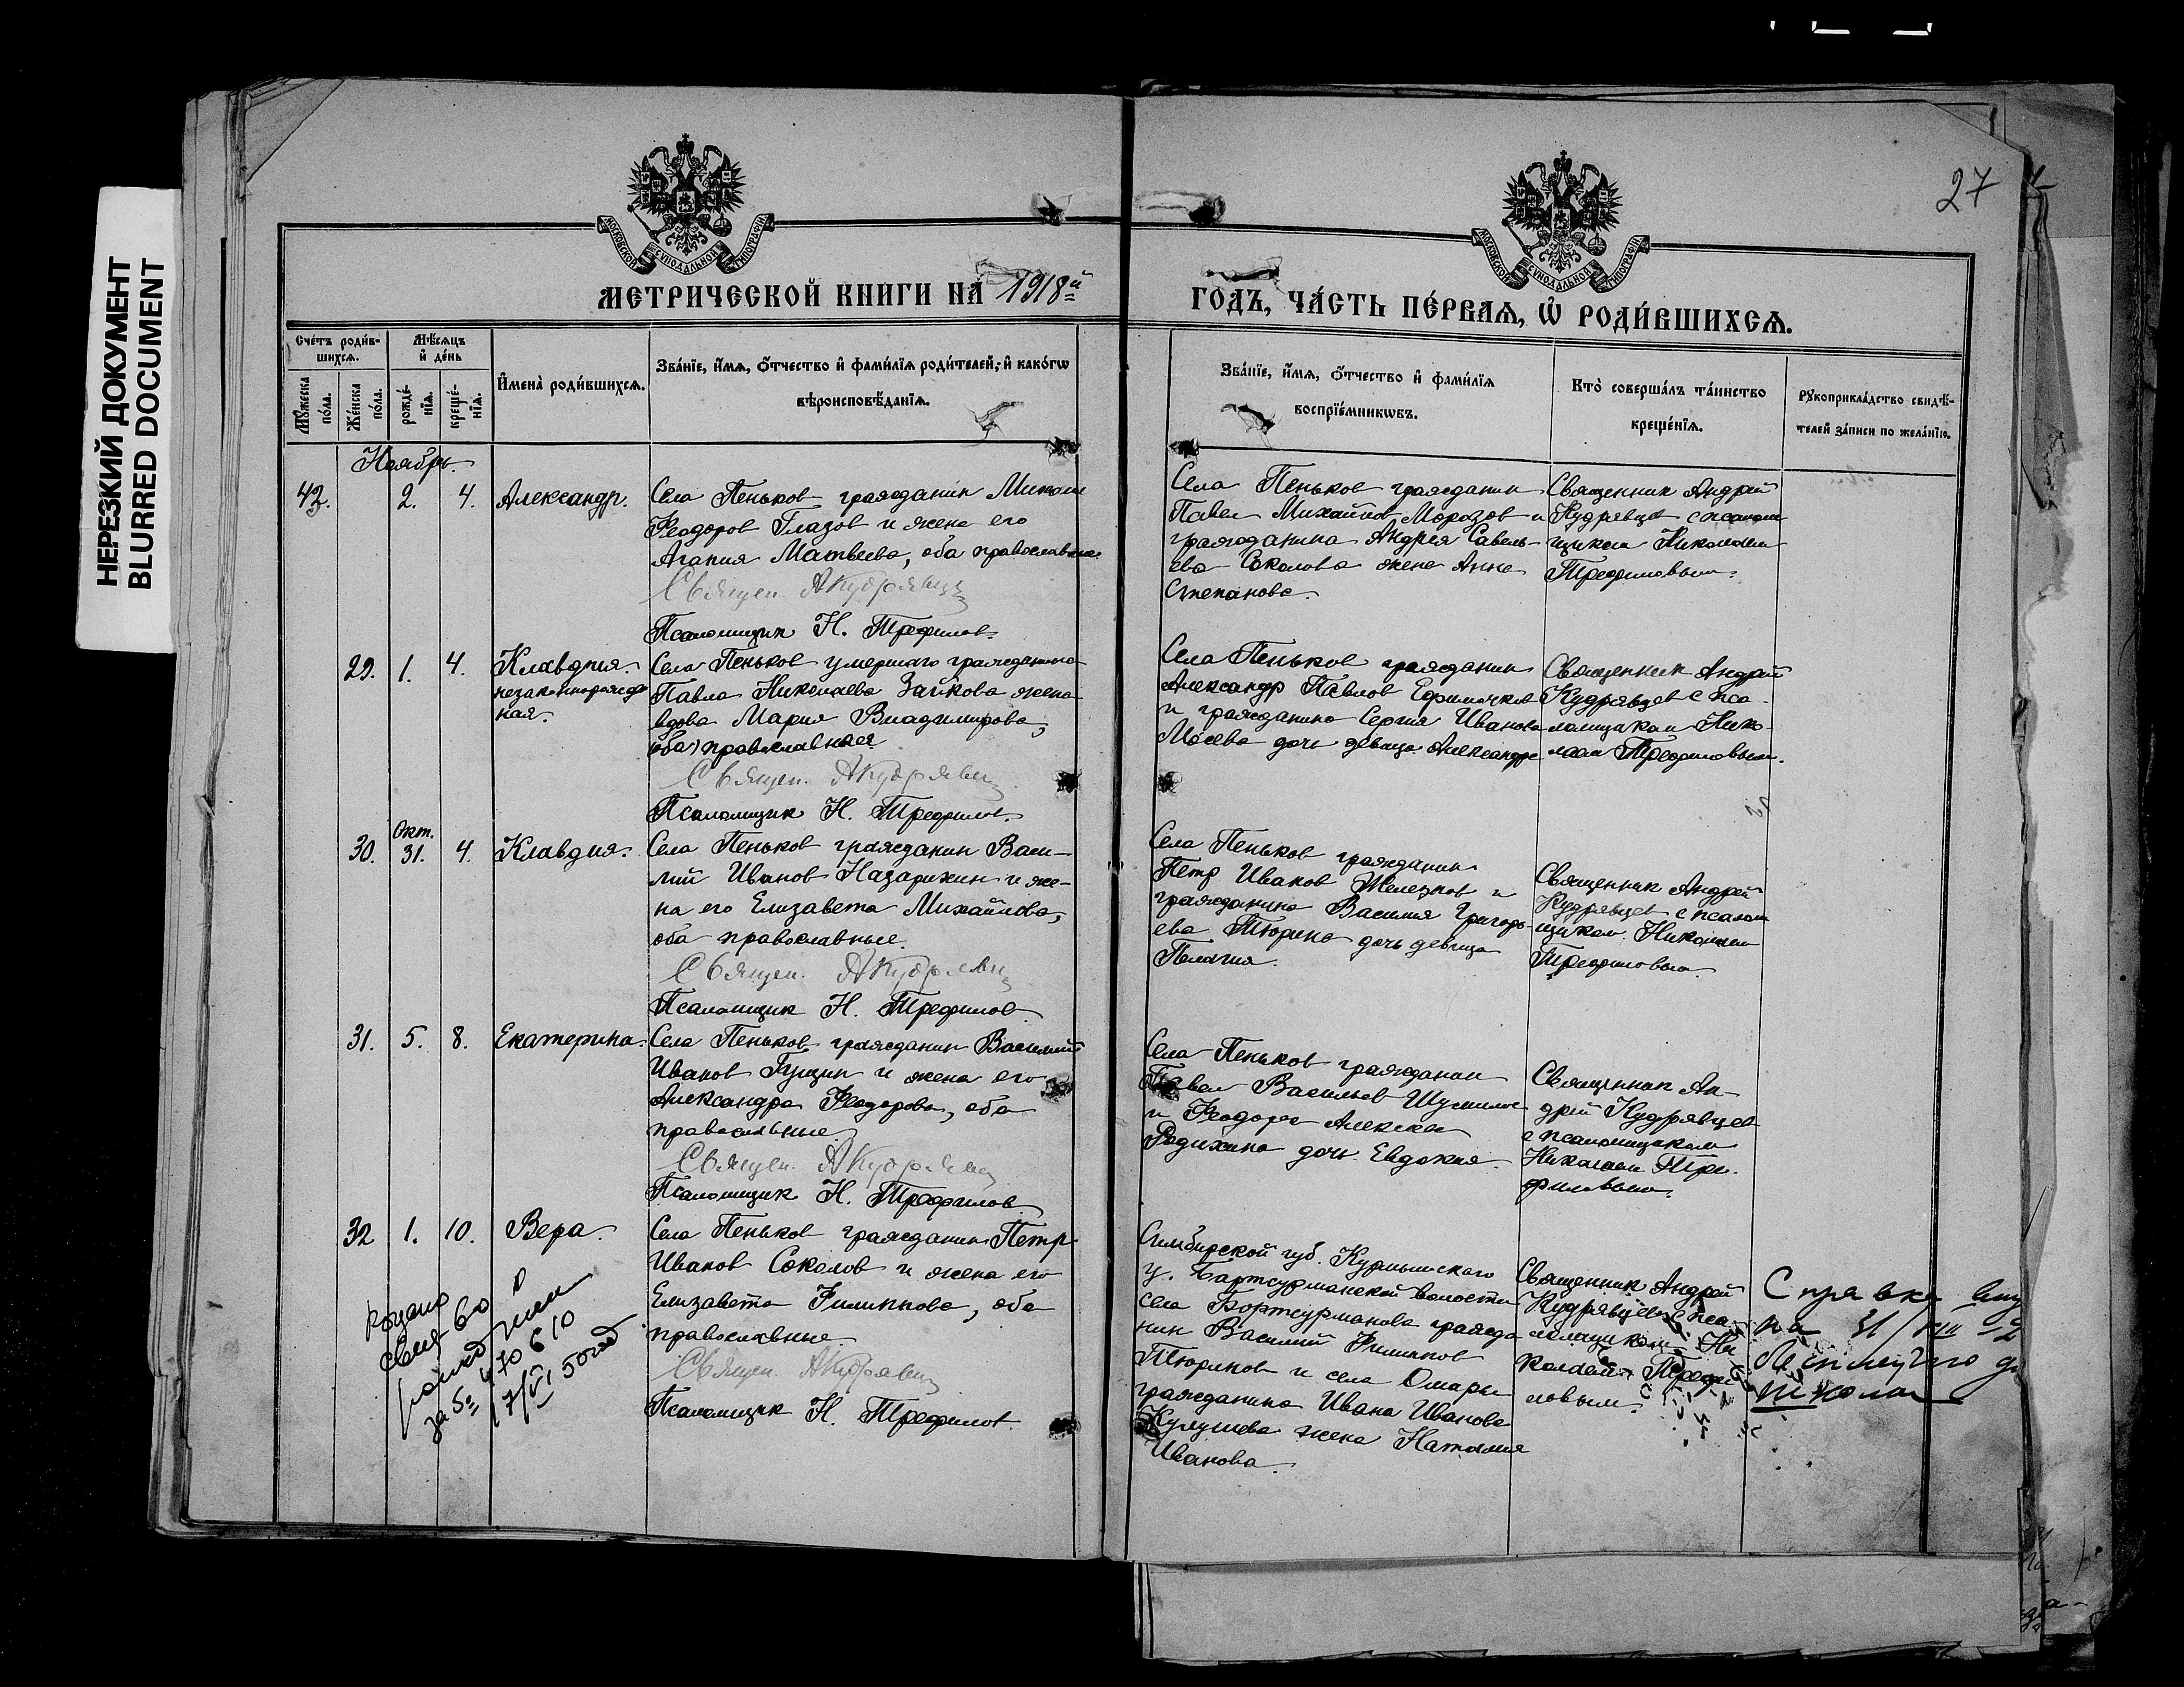 НЕРЕЗКИЙ ДОКУМЕНТ
BLURRED DOCUMENT
27
МОСКОВСКОЙ СѴНОДАЛЬНОЙ ТИПОГРАФІИ
МОСКОВСКОЙ СѴНОДАЛЬНОЙ ТИПОГРАФІИ
МЕТРИЧЕСКОЙ КНИГИ НА 1918й
ГОДЪ, ЧА́СТЬ ПЕ́РВАѦ, Ѿ РОДИ́ВШИХСѦ.
Сче́тъ роди́в-
шихсѧ.
Мѣ́сѧцъ
и҆ де́нь
Мꙋ́жеска
по́ла.
Же́нска
по́ла.
рожде́-
нїѧ.
креще́-
нїѧ.
И҆мена̀ роди́вшихсѧ.
Зва́нїе, и҆́мѧ, ѻ҆́тчество и҆ фами́лїѧ роди́телей, и҆ како́гѡ
вѣроисповѣ́данїѧ.
Зва́нїе, и҆́мѧ, ѻ҆́тчество и҆ фами́лїѧ
воспрїе́мникѡвъ.
Кто̀ соверша́лъ та́инство
креще́нїѧ.
Рꙋкоприкла́дство свидѣ́-
телей за́писи по жела́нїю.
Ноябрь.
42. 2. 4. Александр.
Села Пеньков гражданин Михаил
Феодоров Глазов и жена его
Агапия Матвеева, оба православные.
Священ. АКудрявцев
Псаломщик Н. Трефилов.
Села Пеньков гражданин
Павел Михайлов Морозов и
гражданина Андрея Савель-
ева Соколова жена Анна
Степанова.
Священник Андрей
Кудрявцев с псалом
щиком Николаем
Трефиловым.
29. 1. 4. Клавдия.
незаконнорожден
ная.
Села Пеньков умершаго гражданина
Павла Николаева Зайкова жена
вдова Мария Владимирова,
(оба) православная
Священ. АКудрявцев
Псаломщик Н. Трефилов.
Села Пеньков гражданин
Александр Павлов Ефимочков
и гражданина Сергия Иванова
Мосева дочь девица Александра
Священник Андрей
Кудрявцев с пса-
ломщиком Нико-
лаем Трефиловым.
30. Окт. 31. 4. Клавдия.
Села Пеньков гражданин Васи-
лий Иванов Назарихин и же-
на его Елизавета Михайлова,
оба православные.
Священ. АКудрявцев
Псаломщик Н. Трефилов
Села Пеньков гражданин
Петр Иванов Железнов и
гражданина Василия Григорь-
ева Тюрина дочь девица
Пелагия.
Священник Андрей
Кудрявцев с псалом
щиком Николаем
Трефиловым.
31. 5. 8. Екатерина.
Села Пеньков гражданин Василий
Иванов Гущин и жена его
Александра Феодорова, оба
православные
Священ. АКудрявцев
Псаломщик Н. Трефилов
Села Пеньков гражданин
Павел Васильев Шумилов
и Феодора Алексеева
Редихина дочь Евдокия.
Священник Ан-
дрей Кудрявцев
с псаломщиком
Николаем Тре-
филовым.
32 1. 10. Вера.
Села Пеньков гражданин Петр
Иванов Соколов и жена его
Елизавета Филиппова, оба
православные
Священ. АКудрявцев
Псаломщик Н. Трефилов.
Симбирской губ. Курмышскаго
у. Бартсурманской волости
села Бортсурманова гражда
нин Василий Филиппов
Тюриков и села Омары
гражданина Ивана Иванова
Кулушева жена Наталия
Иванова.
Священник Андрей
Кудрявцев с пса-
ломщиком Ни
колаем Трефи
ловым.
470610
17/VI 50 год
Справка
на 31/XII
школы